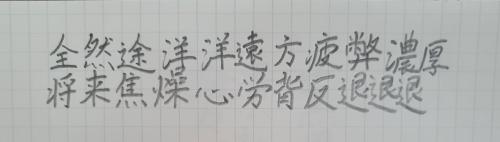 全然途洋洋遠方疲弊濃厚
将来焦燥心労背反退退退